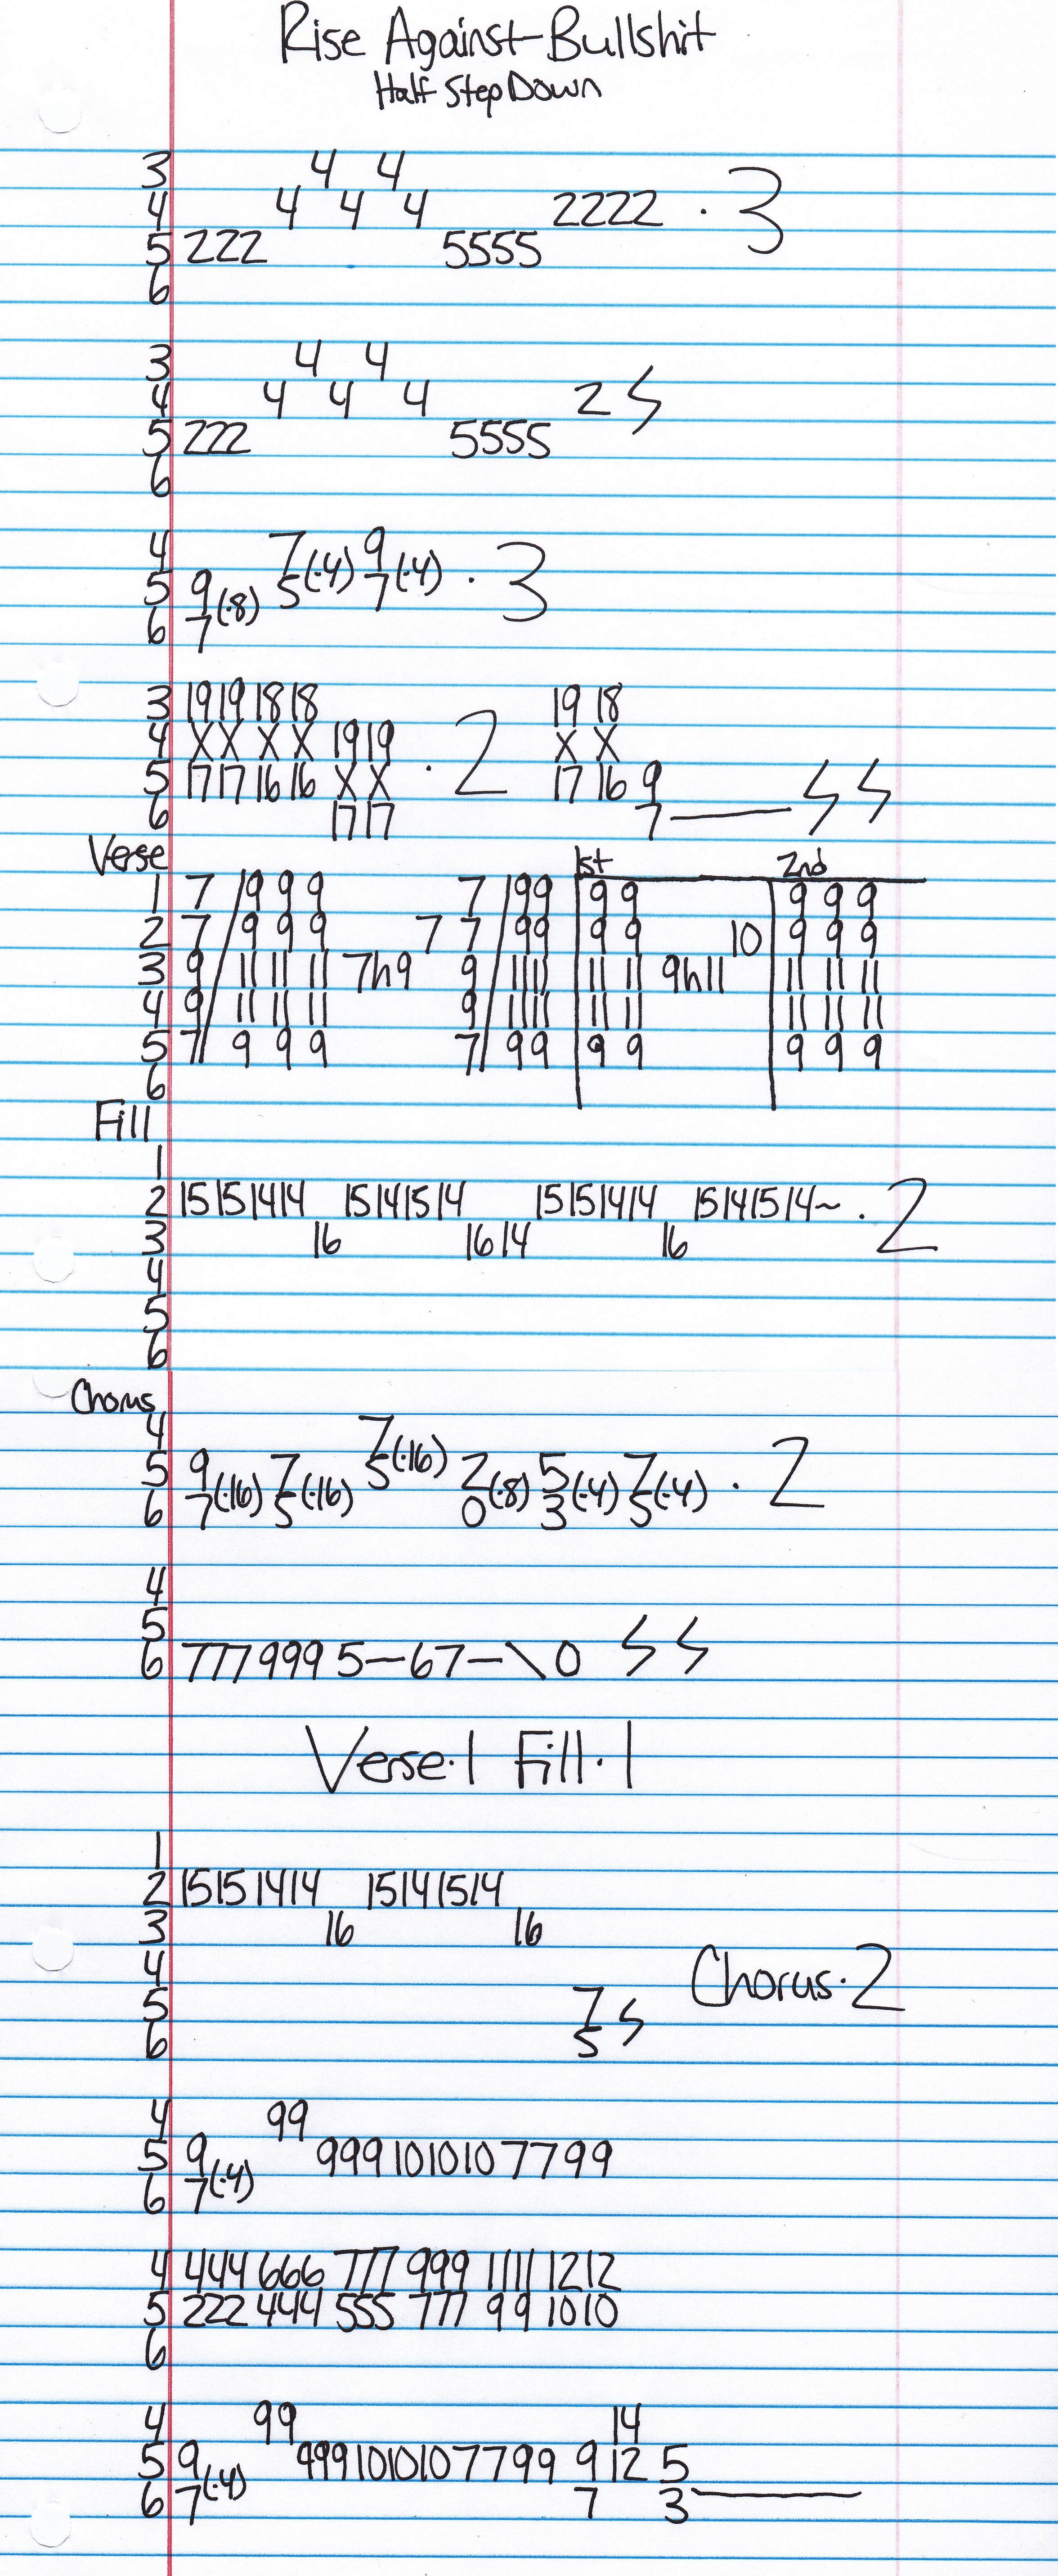 Rise Against-Bullshit
Half Step Down
3 4 4
4 4 4 4 2222 · 3
5 222 5555
6
3 4 4
4 4 4 4 2 ϟ
5 222 5555
6
4 7 9
5 9 5(·4) 7(·4) · 3
6 7(·8)
3 19 19 18 18 19 18
4 X X X X 19 19 · 2 X X
5 17 17 16 16 X X 17 16 9
6 17 17 7 — ϟ ϟ
Verse 1st 2nd
1 7 / 9 9 9 7 / 99 9 9 9 9 9
2 7 / 9 9 9 7 7 / 99 9 9 10 9 9 9
3 9 / 11 11 11 7h9 9 / 1111 11 11 9h11 11 11 11
4 9 / 11 11 11 9 / 1111 11 11 11 11 11
5 7 / 9 9 9 7 / 99 9 9 9 9 9
6
Fill
1
2 15151414 15141514 15151414 15141514~ · 2
3 16 16 14 16
4
5
6
Chorus
4 7
5 9 7 5(·16) 2 5 7 · 2
6 7(·16) 5(·16) 0(·8) 3(·4) 5(·4)
4
5
6 777 999 5—67—\ 0 ϟ ϟ
Verse·1 Fill·1
1
2 15151414 15141514
3 16 16
4
5 7
6 5 ϟ
Chorus·2
4 99
5 9 999101010 7799
6 7(·4)
4 444 666 777 999 1111 1212
5 222 444 555 777 99 1010
6
4 99 14
5 9 999101010 7799 9 12 5
6 7(·4) 7 3 —